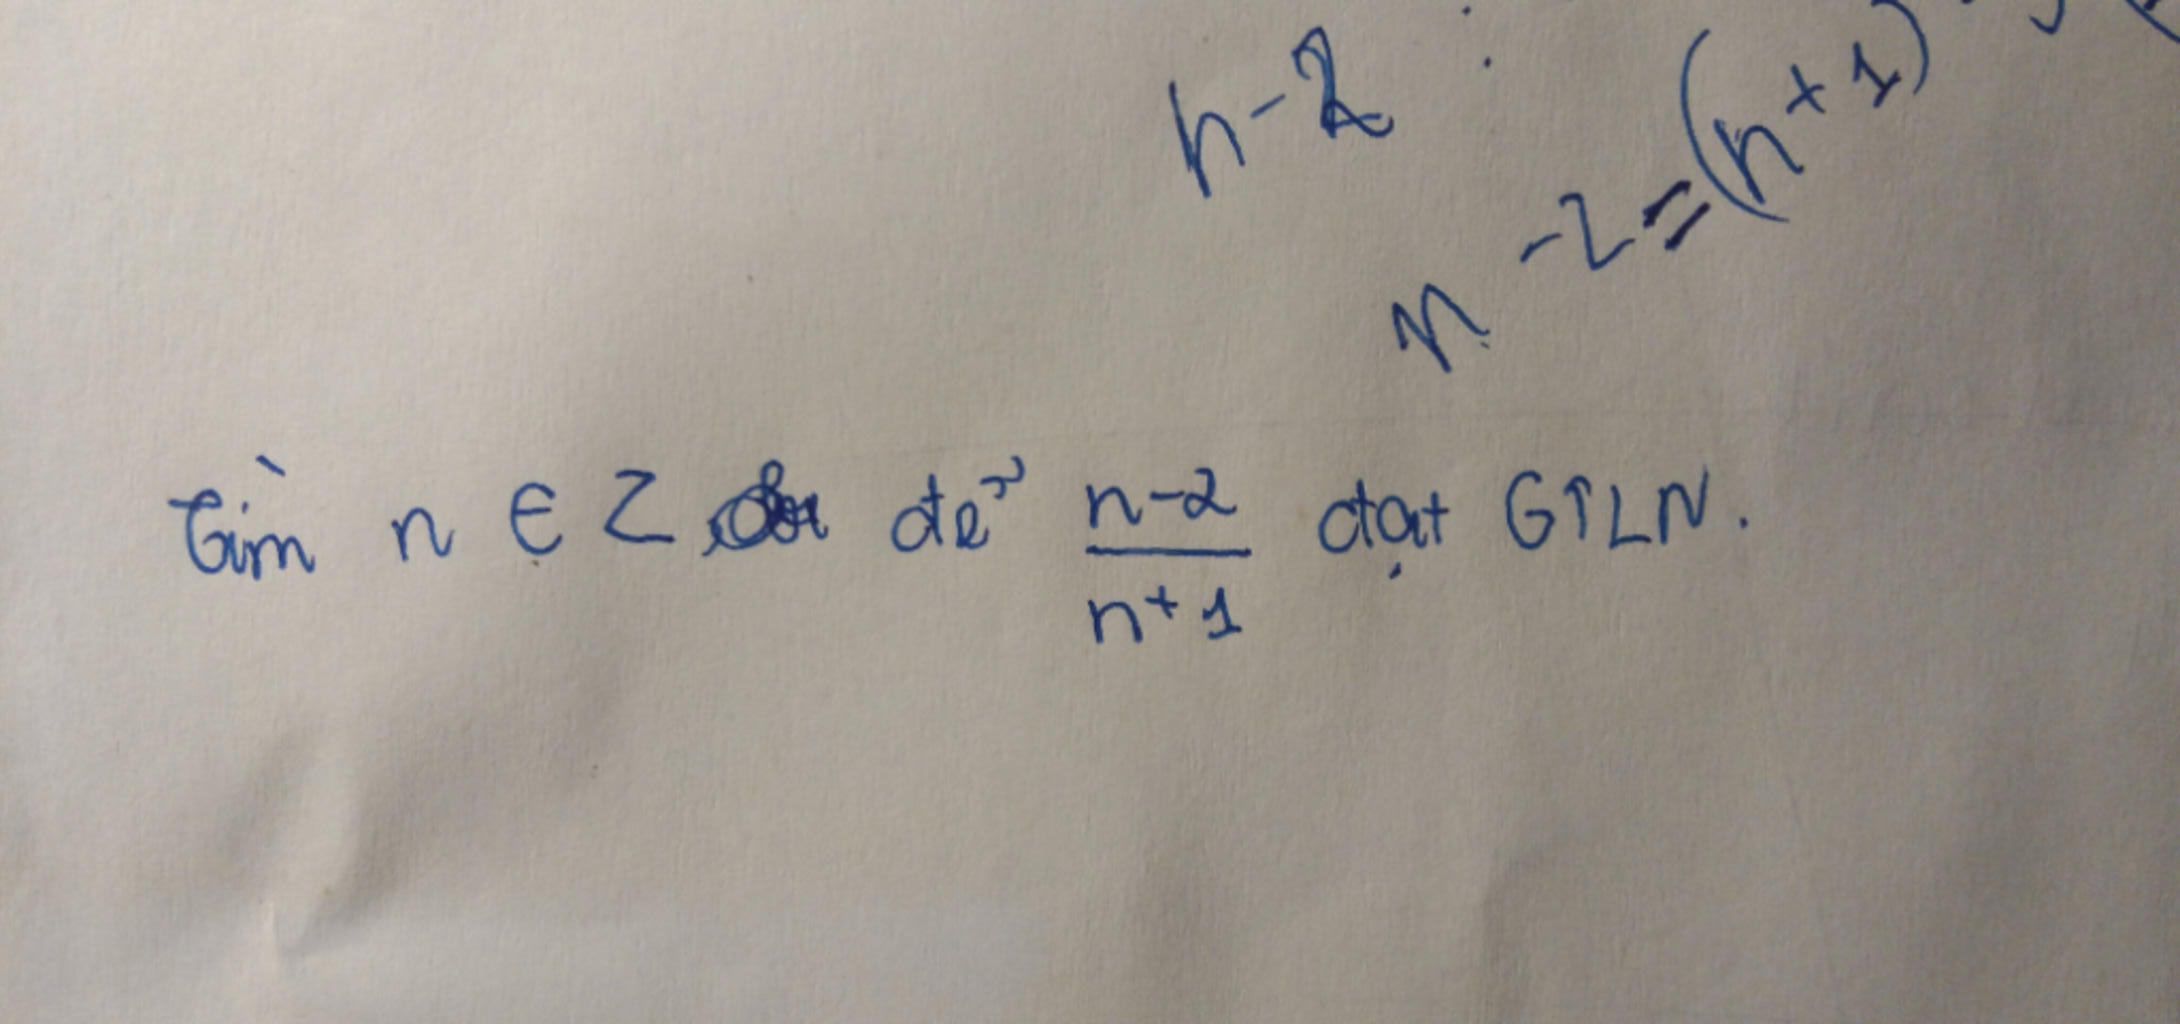 n-2 :
n -2 = (n+1)
Tìm n ∈ Z để n-2/n+1 đạt GTLN.